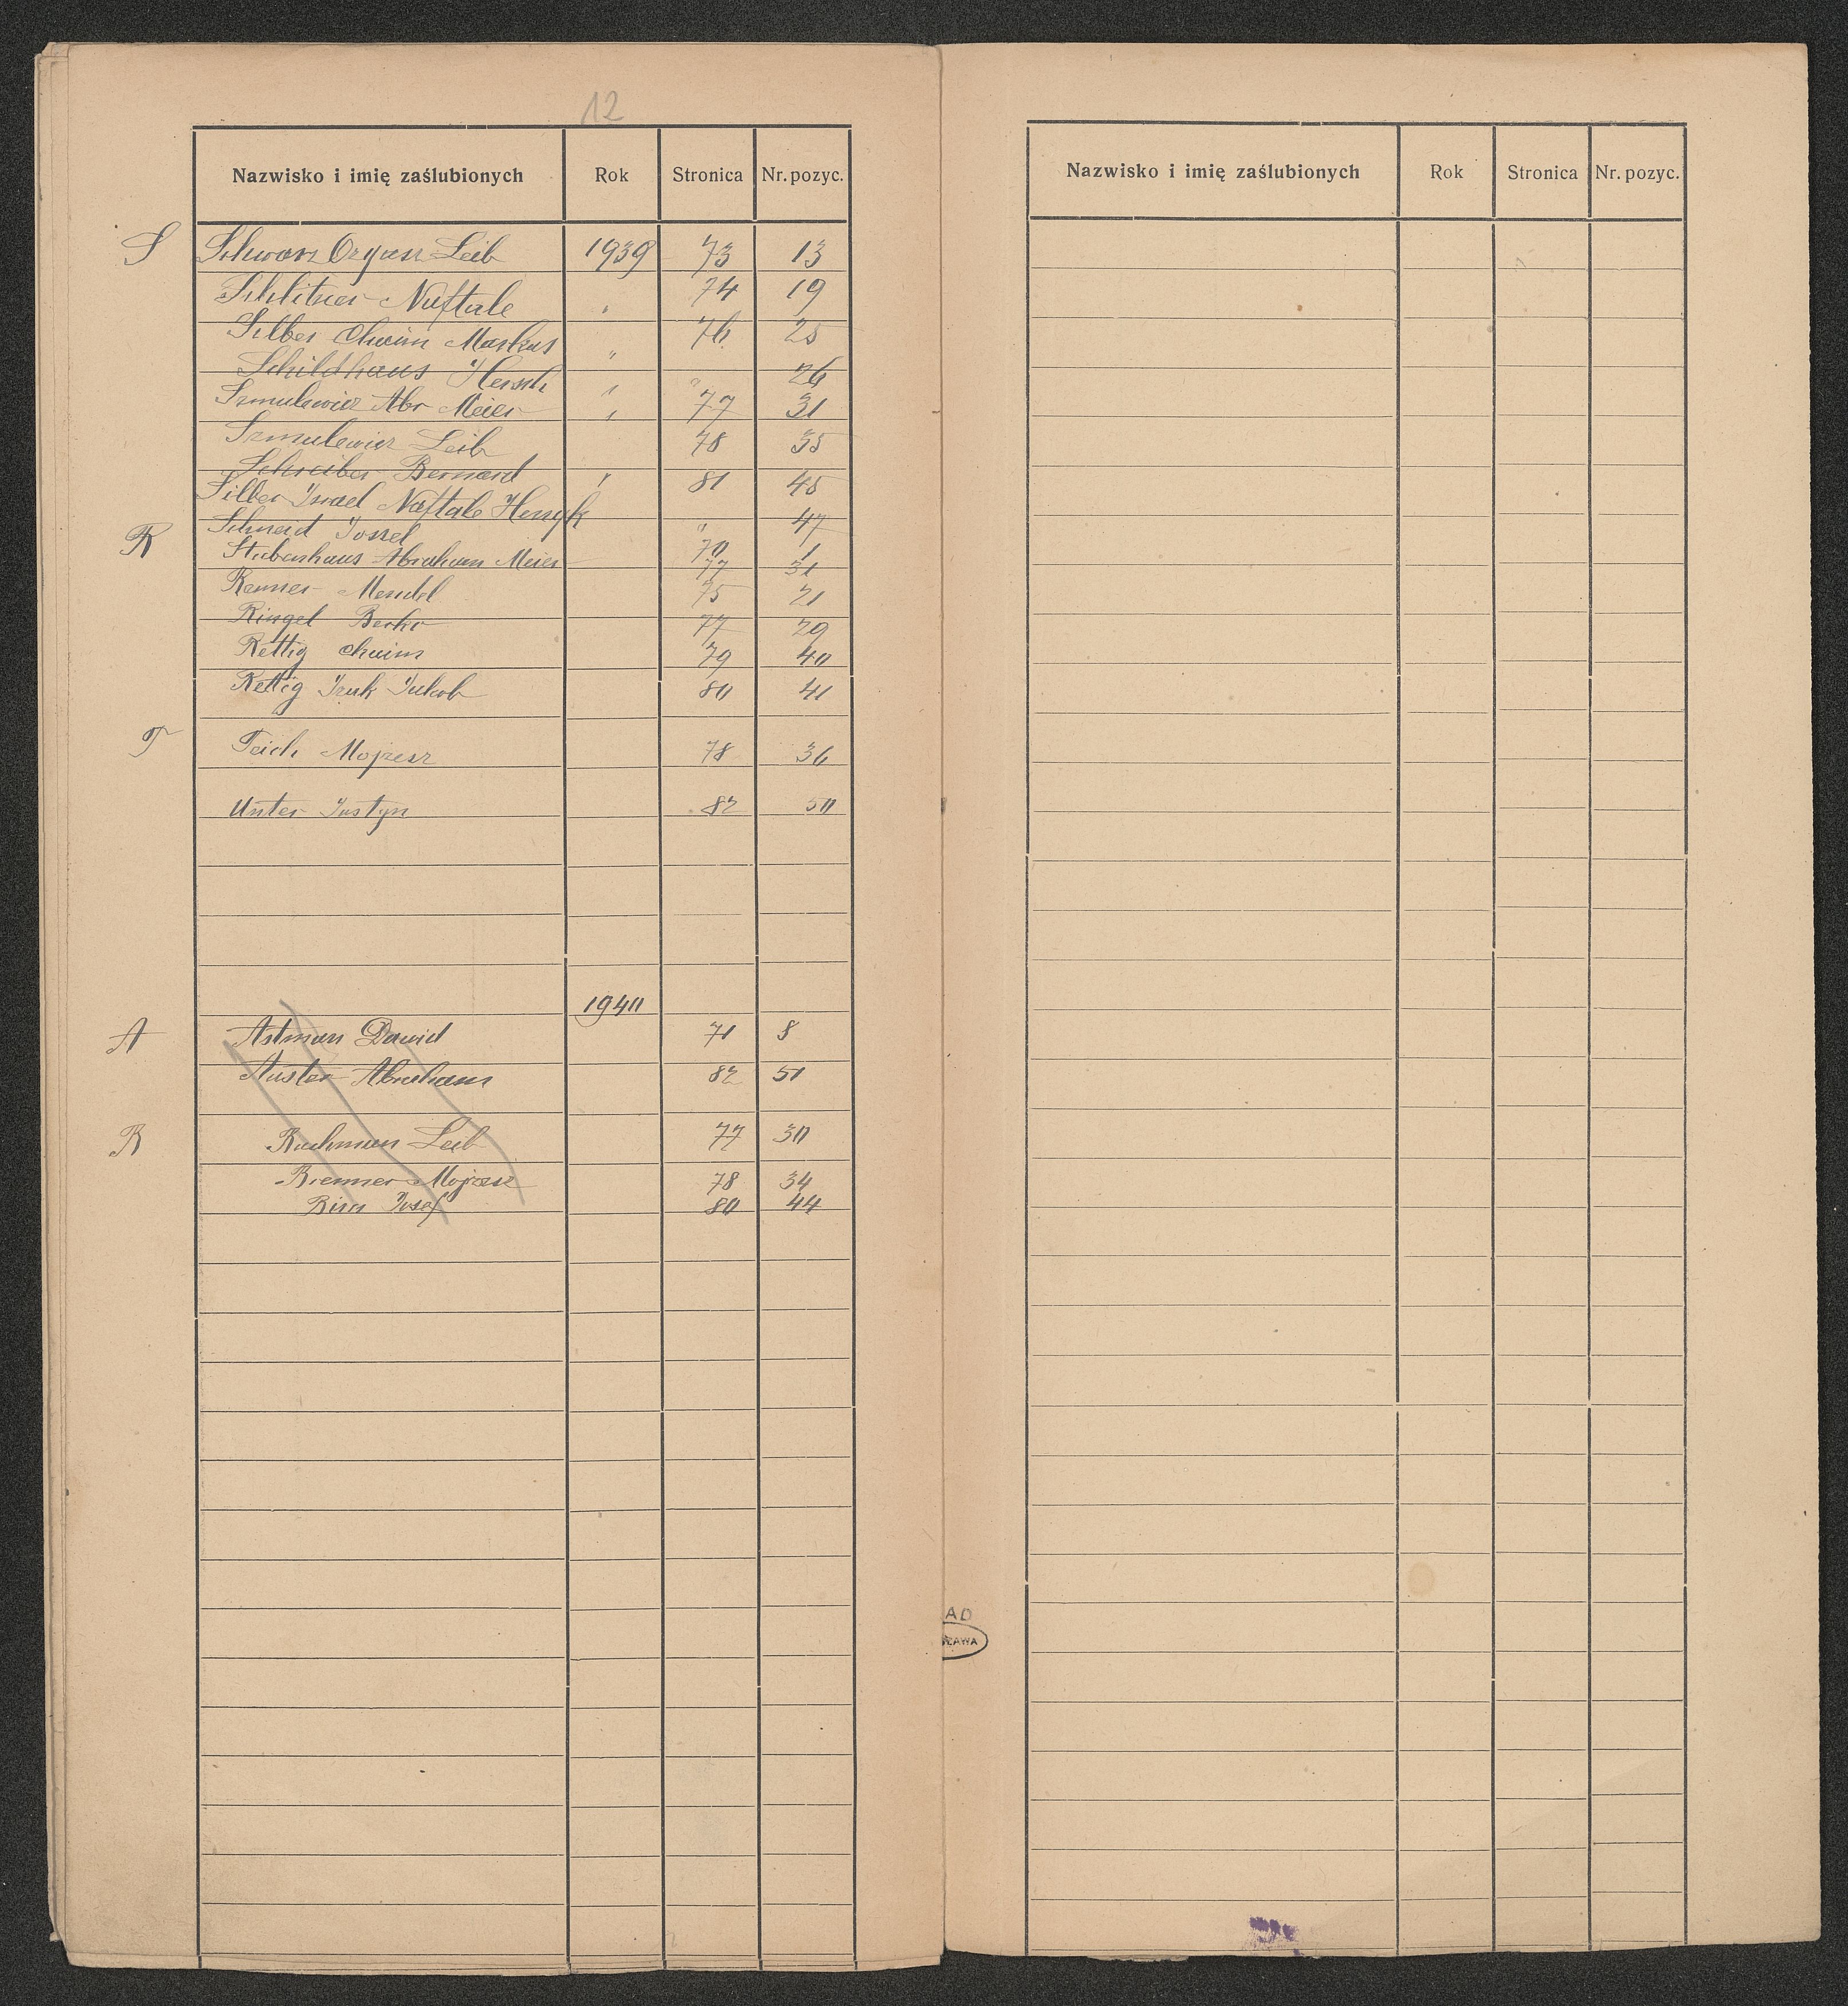 12
Nazwisko i imię zaślubionych Rok Stronica Nr. pozyc.
S Schwarz Leib 1939 73 13
Schlitner Naftale " 74 19
Silber Chaim Markus " 76 25
Schildhaus Hersch " " 26
Szmulewicz Abr Meier " 77 31
Szmulewicz Leib 78 35
Schreiber Bernard " 81 45
Silber Israel Naftale Henryk " 47
R Schneid Jossel 70 1
Stubenhaus Abraham Meier 77 31
Renner Mendel 75 21
Ringel Berko 77 29
Rettig Chaim 79 40
Rettig Izak Jakob 80 41
T Teich Mojżesz 78 36
Unter Justyn 82 50
1940
A Astman Dawid 71 8
Auster Abraham 82 51
B Bachman Leib 77 30
Brenner Mojżesz 78 34
Josef 80 44
Nazwisko i imię zaślubionych Rok Stronica Nr. pozyc.
AD